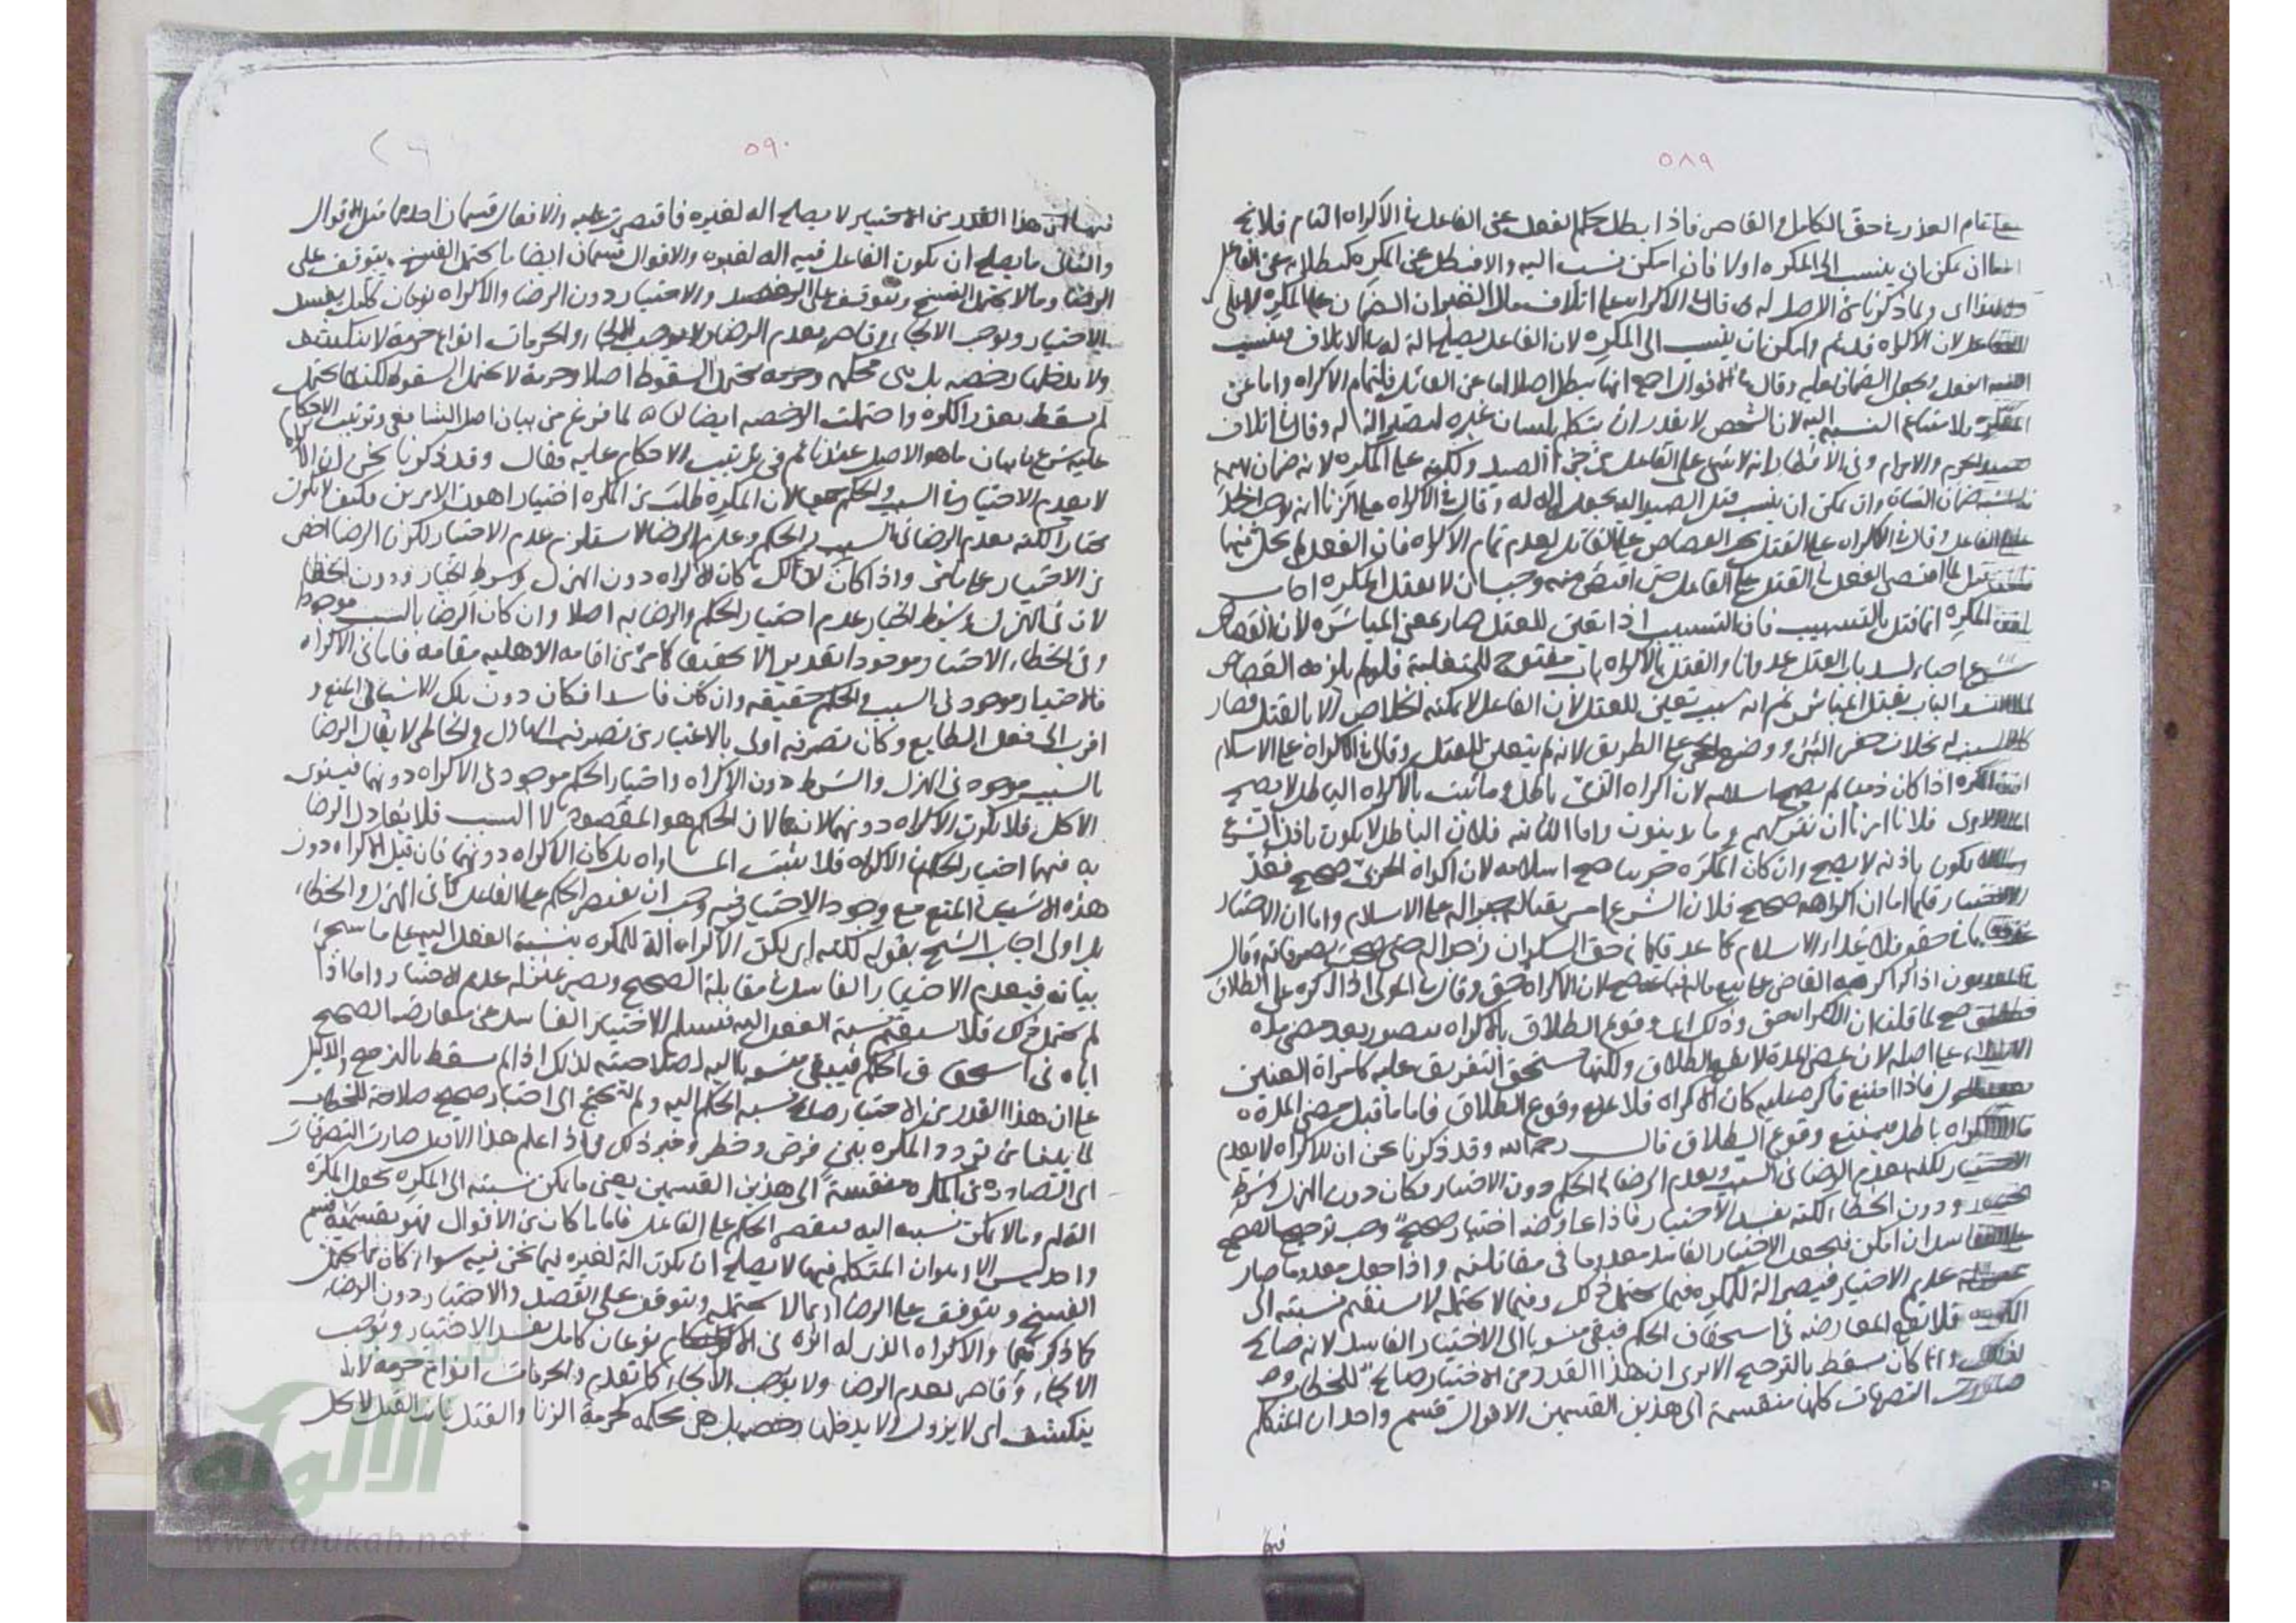 ٥٨٩
تمام العذر في حق الكامل والقاصر فاذا بطل حكم الفعل عن الفاعل في الاكراه التام فلا يخ
ان يمكن ان ينسب الى المكره اولا فان امكن نسب اليه والا فبطل عن المكره كبطلانه عن الفاعل
ولما ذكرنا من الاصل له قال في الاكراه على اتلاف مال الغير ان الضمان على المكره لا على
لان الاكراه قد تم وامكن ان ينسب الى المكره لان الفاعل يصلح الة له في الاتلاف فينسب
الفعل ويجعل الضمان عليه وقال في الاقوال اجمع انها تبطل اصلا اما عن القائل فلتمام الاكراه واما عن
المكره فلامتناع النسبة اليه لان الشخص لا يقدر ان يتكلم بلسان غيره ليصير الة له وقال في اتلاف
صيد الحرم والاحرام وفي الافطار انه لا شيء على الفاعل من جزاء الصيد ولكنه على المكره لانه ضمان
ضمان الشاة وان يمكن ان ينسب قتل الصيد اليه بجعل الة له وقال في الاكراه على الزنا انه
على الفاعل وقال في الاكراه على القتل يجب القصاص على القاتل لعدم تمام الاكراه فان الفعل لم يحل فيها
قيل لما اقتصر الفعل في القتل على الفاعل حتى اقتص منه وجب ان لا يقتل المكره اجاب
المكره انما قتل بالتسبيب فان التسبيب اذا تعين للقتل صار بمعنى المباشرة لان القصاص
شرع احياء لسد باب القتل عدوانا والقتل بالاكراه باب مفتوح للمتغلبة فلو لم يلزمه القصاص
الباب بقتل المباشر ثم انه سبب تعين للقتل لان الفاعل لا يمكنه الخلاص الا بالقتل فصار
بخلاف حفر البئر ووضع الحجر على الطريق لانه لم يتعين للقتل وقال في الاكراه على الاسلام
المكره اذا كان ذميا لم يصح اسلامه لان اكراه الذمي باطل وما ثبت بالاكراه الباطل لا يصح
فلانا امرنا ان نتركهم وما يدينون واما الثانية فلان الباطل لا يكون باذن الشرع
يكون باذنه لا يصح وان كان المكره حربيا صح اسلامه لان اكراه الحربي صحيح فعد
الاختيار قائما اما ان اكراهه صحيح فلان الشرع امر بقتاله وجبره على الاسلام واما ان الاختيار
في حقه فلا يعد الاسلام كما عد قائما في حق السكران زجرا له حتى صحت تصرفاته وقال
المديون اذا اكرهه القاضي على بيع ماله صح لان الاكراه حق وقال في المولى اذا اكره على الطلاق
صح لما قلنا ان الاكراه حق وذلك اي وقوع الطلاق بالاكراه يتصور بعد مضي مدة
الايلاء على اصله لان بمضي المدة لا يقع الطلاق ولكنها تستحق التفريق عليه كامراة العنين
فاذا امتنع فاكره عليه كان الاكراه فلا يمنع وقوع الطلاق فاما ما قبل مضي المدة
فالاكراه باطل فيمتنع وقوع الطلاق قال رحمه الله وقد ذكرنا نحن ان الاكراه لا يعدم
الاختيار لكنه يعدم الرضا في السبب ويعدم الرضا في الحكم دون الاختيار فكان دون الهزل وشرط
الخيار ودون الخطا لكنه يفسد الاختيار فاذا عارضه اختيار صحيح وجب ترجيح الصحيح
على الفاسد ان امكن فيجعل الاختيار الفاسد معدوما في مقابلته واذا جعل معدوما صار
بمنزلة عديم الاختيار فيصير الة للمكره فيما يحتمل ذلك وفيما لا يحتمله لا يستقيم نسبته الى
المكره فلا تقع المعارضة في استحقاق الحكم فبقي منسوبا الى الاختيار الفاسد لانه صالح
لذلك وانما كان يسقط بالترجيح الا يرى ان هذا القدر من الاختيار صالح للخطاب
صارت التصرفات كلها منقسمة الى هذين القسمين الاقوال قسم واحد ان المتكلم
فيها
٥٩٠
فيها ان هذا القدر من الاختيار لا يصلح الة لغيره فاقتصرت عليه والافعال قسمان احدهما مثل الاقوال
والثاني ما يصلح ان يكون الفاعل فيه الة لغيره والاقوال قسمان ايضا ما يحتمل الفسخ ويتوقف على
الرضا وما لا يحتمل الفسخ ويتوقف على القصد والاختيار دون الرضا والاكراه نوعان كامل يفسد
الاختيار ويوجب الالجاء وقاصر يعدم الرضا ولا يوجب الالجاء والحرمات انواع حرمة لا تنكشف
ولا يدخلها رخصة بل هي محكمة وحرمة تحتمل السقوط اصلا وحرمة لا تحتمل السقوط لكنها تحتمل
لم يسقط بعذر الكره واحتملت الرخصة ايضا لما فرغ من بيان اصل الشافعي وترتيب الاحكام
عليه شرع في بيان ما هو الاصل عندنا ثم في ترتيب الاحكام عليه فقال وقد ذكرنا نحن ان الاكراه
لا يعدم الاختيار في السبب والحكم جميعا لان المكره طلب من المكره اختيار اهون الامرين فكيف لا يكون
مختارا لكنه يعدم الرضا في السبب والحكم وعدم الرضا لا يستلزم عدم الاختيار لكون الرضا اخص
من الاختيار على ما مر واذا كان كذلك كان الاكراه دون الهزل وشرط الخيار ودون الخطا
لان في الهزل وشرط الخيار عدم اختيار الحكم والرضا به اصلا وان كان الرضا بالسبب موجودا
وفي الخطاء الاختيار موجودا تقديرا لا تحقيقا كما مر من اقامة الاهلية مقامه فاما في الاكراه
فالاختيار موجود في السبب والحكم حقيقة وان كان فاسدا فكان دون تلك الاشياء في المنع و
اقرب الى فعل الطايع وكان تصرفه اولى بالاعتبار من تصرف الهازل والخاطي لا يقال الرضا
بالسبب موجود في الهزل والشرط دون الاكراه واختيار الحكم موجود في الاكراه دونهما فيستوي
الكل فلا يكون الاكراه دونهما لانا نقول لان الحكم هو المقصود لا السبب فلا يعادل الرضا
به فيهما اختيار الحكم في الاكراه فلا يثبت المساواة بل كان الاكراه دونهما فان قيل الاكراه دون
هذه الاشياء في المنع مع وجود الاختيار فيه وجب ان يقتصر الحكم على الفاعل كما في الهزل والخطاء
بل اولى اجاب الشيخ بقوله لكنه اي لكن الاكراه الة للمكره بنسبة الفعل اليه على ما سيجيء
بيانه فيعدم الاختيار الفاسد في مقابلة الصحيح ويصير بمنزلة عدم الاختيار واما اذا
لم يحتمل ذلك فلا يستقيم نسبة الفعل اليه فيسلم الاختيار الفاسد عن معارضة الصحيح
اياه في استحقاق الحكم فيبقى منسوبا اليه لصلاحيته لذلك اذا لم يسقط بالترجيح والدليل
على ان هذا القدر من الاختيار صالح لنسبة الحكم اليه ولم تحتج الى اختيار صحيح صلاحه للخطاب
لما بينا من تردد المكره بين فرض وحظر وغير ذلك فاذا علم هذا الاصل صارت التصرفات
اي الصادرة من المكره منقسمة الى هذين القسمين يعني ما يمكن نسبته الى المكره بجعل المكره
الة له وما لا يمكن نسبته اليه فيقتصر الحكم على الفاعل فاما ما كان من الاقوال فهو بقسميه قسم
واحد ليس الا وهو ان المتكلم فيها لا يصلح ان يكون الة لغيره فيما نحن فيه سواء كان مما يحتمل
الفسخ ويتوقف على الرضا او مما لا يحتمله ويتوقف على القصد والاختيار دون الرضاء
كما ذكر فيها والاكراه الذي له اثره في الاحكام نوعان كامل يفسد الاختيار ويوجب
الالجاء وقاصر يعدم الرضا ولا يوجب الالجاء كما تقدم والحرمات انواع حرمة لا
ينكشف اي لا يزول ولا يدخلها رخصة بل هي محكمة كحرمة الزنا والقتل فان القتل لا يحل
الألوكة
www.alukah.net